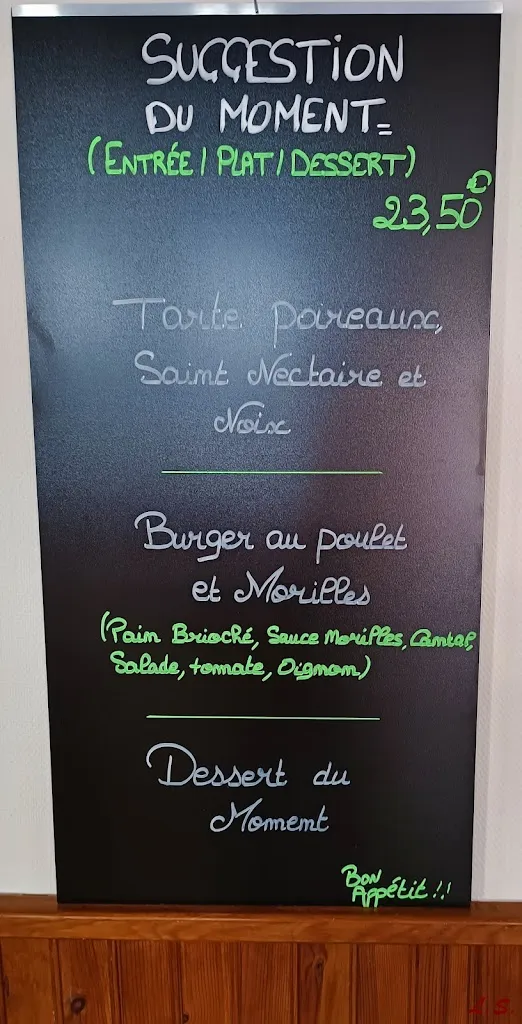 SUGGESTION
DU MOMENT=
(ENTRÉE / PLAT / DESSERT)
23,50€
Tarte poireaux,
Saint Nectaire et
Noix
Burger au poulet
et Morilles
(Pain Brioché, Sauce Morilles, Cantal,
Salade, tomate, Oignon)
Dessert du
Moment
BON
APPÉtit !!
L S.